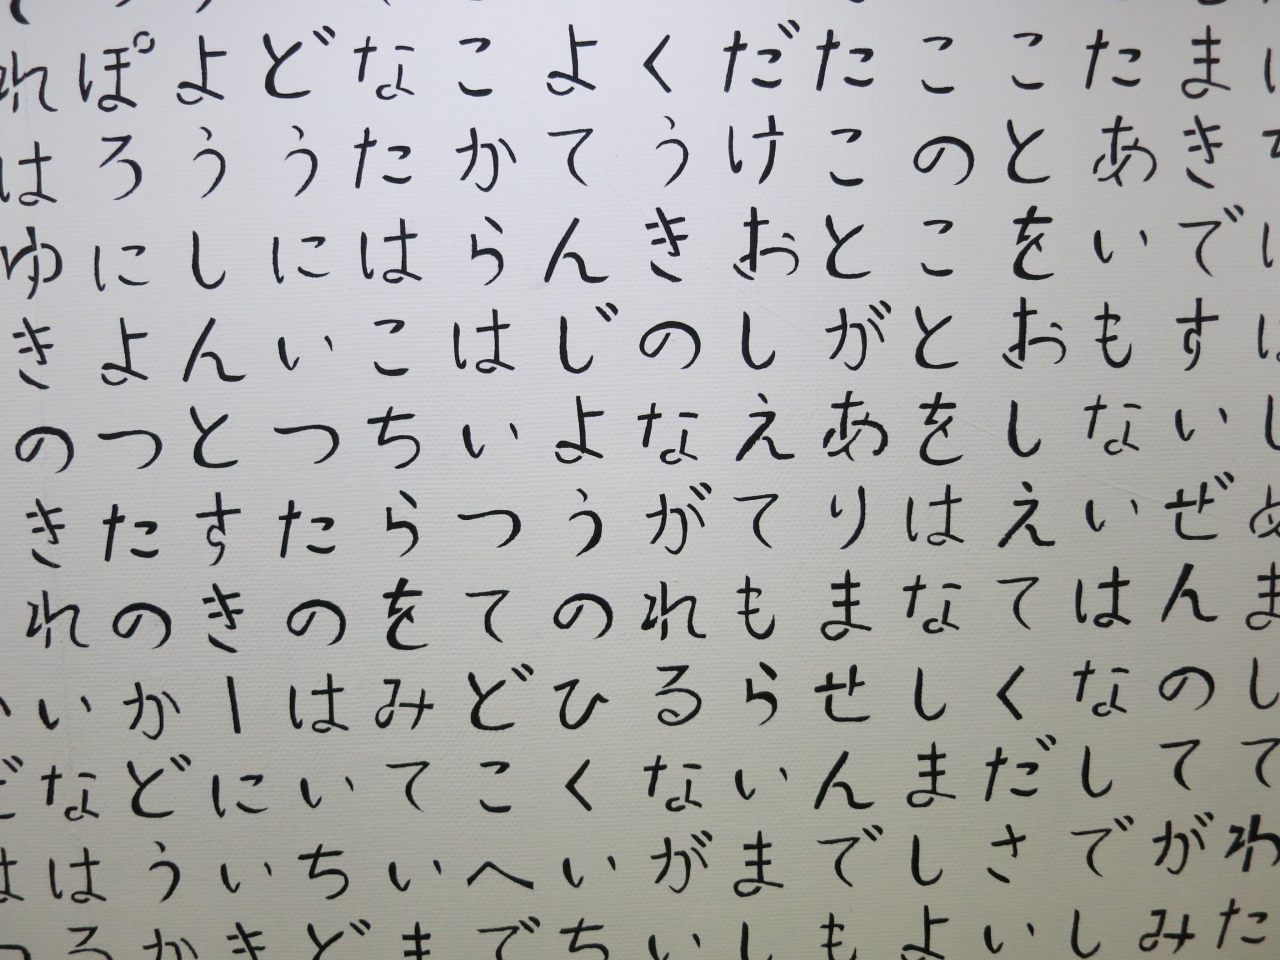 ましてわた
まきですいぜんのてがみ
たあいもないはなしでし
ことをおしえてください
このことをはなしましよ
たことがありませんでも
だけおしえてもらいまし
くうきのながれるないが
よてんじようのひくいち
こからはいつてどこへで
なたはこちらをみていま
どうにいつたのはいちど
ようしんとすきーにいき
ぽろによつたのかどうか
れはゆきのきれいなはろ